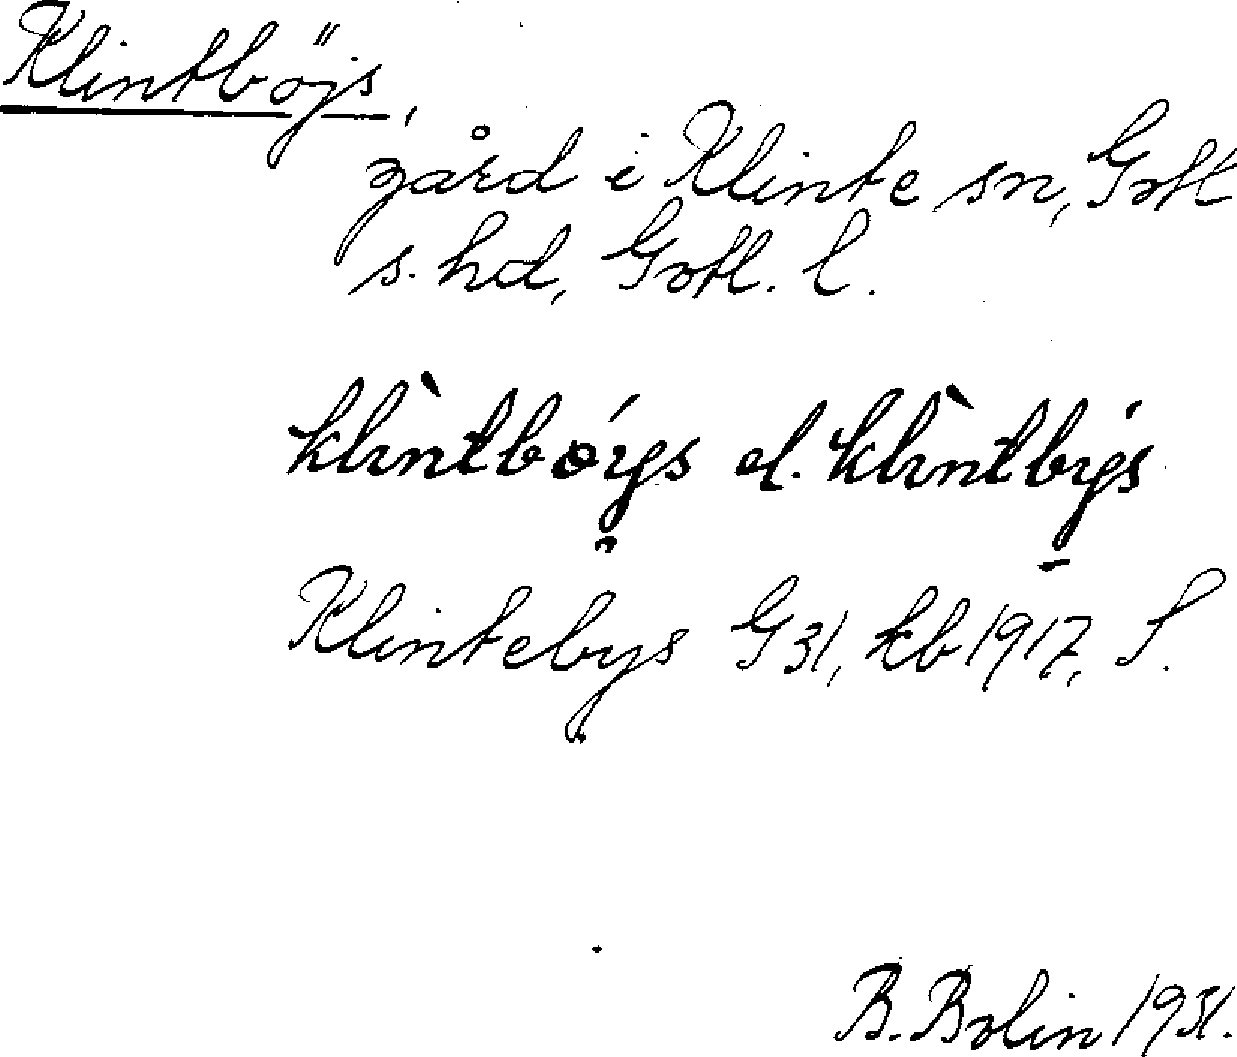 Klintböjs,
gård i Klinte sn, Gotl
s. hd, Gotl. l.
klìntbóys el. klìntbýs
Klintebys G 31, kb 1917, S.
B. Bolin 1931.